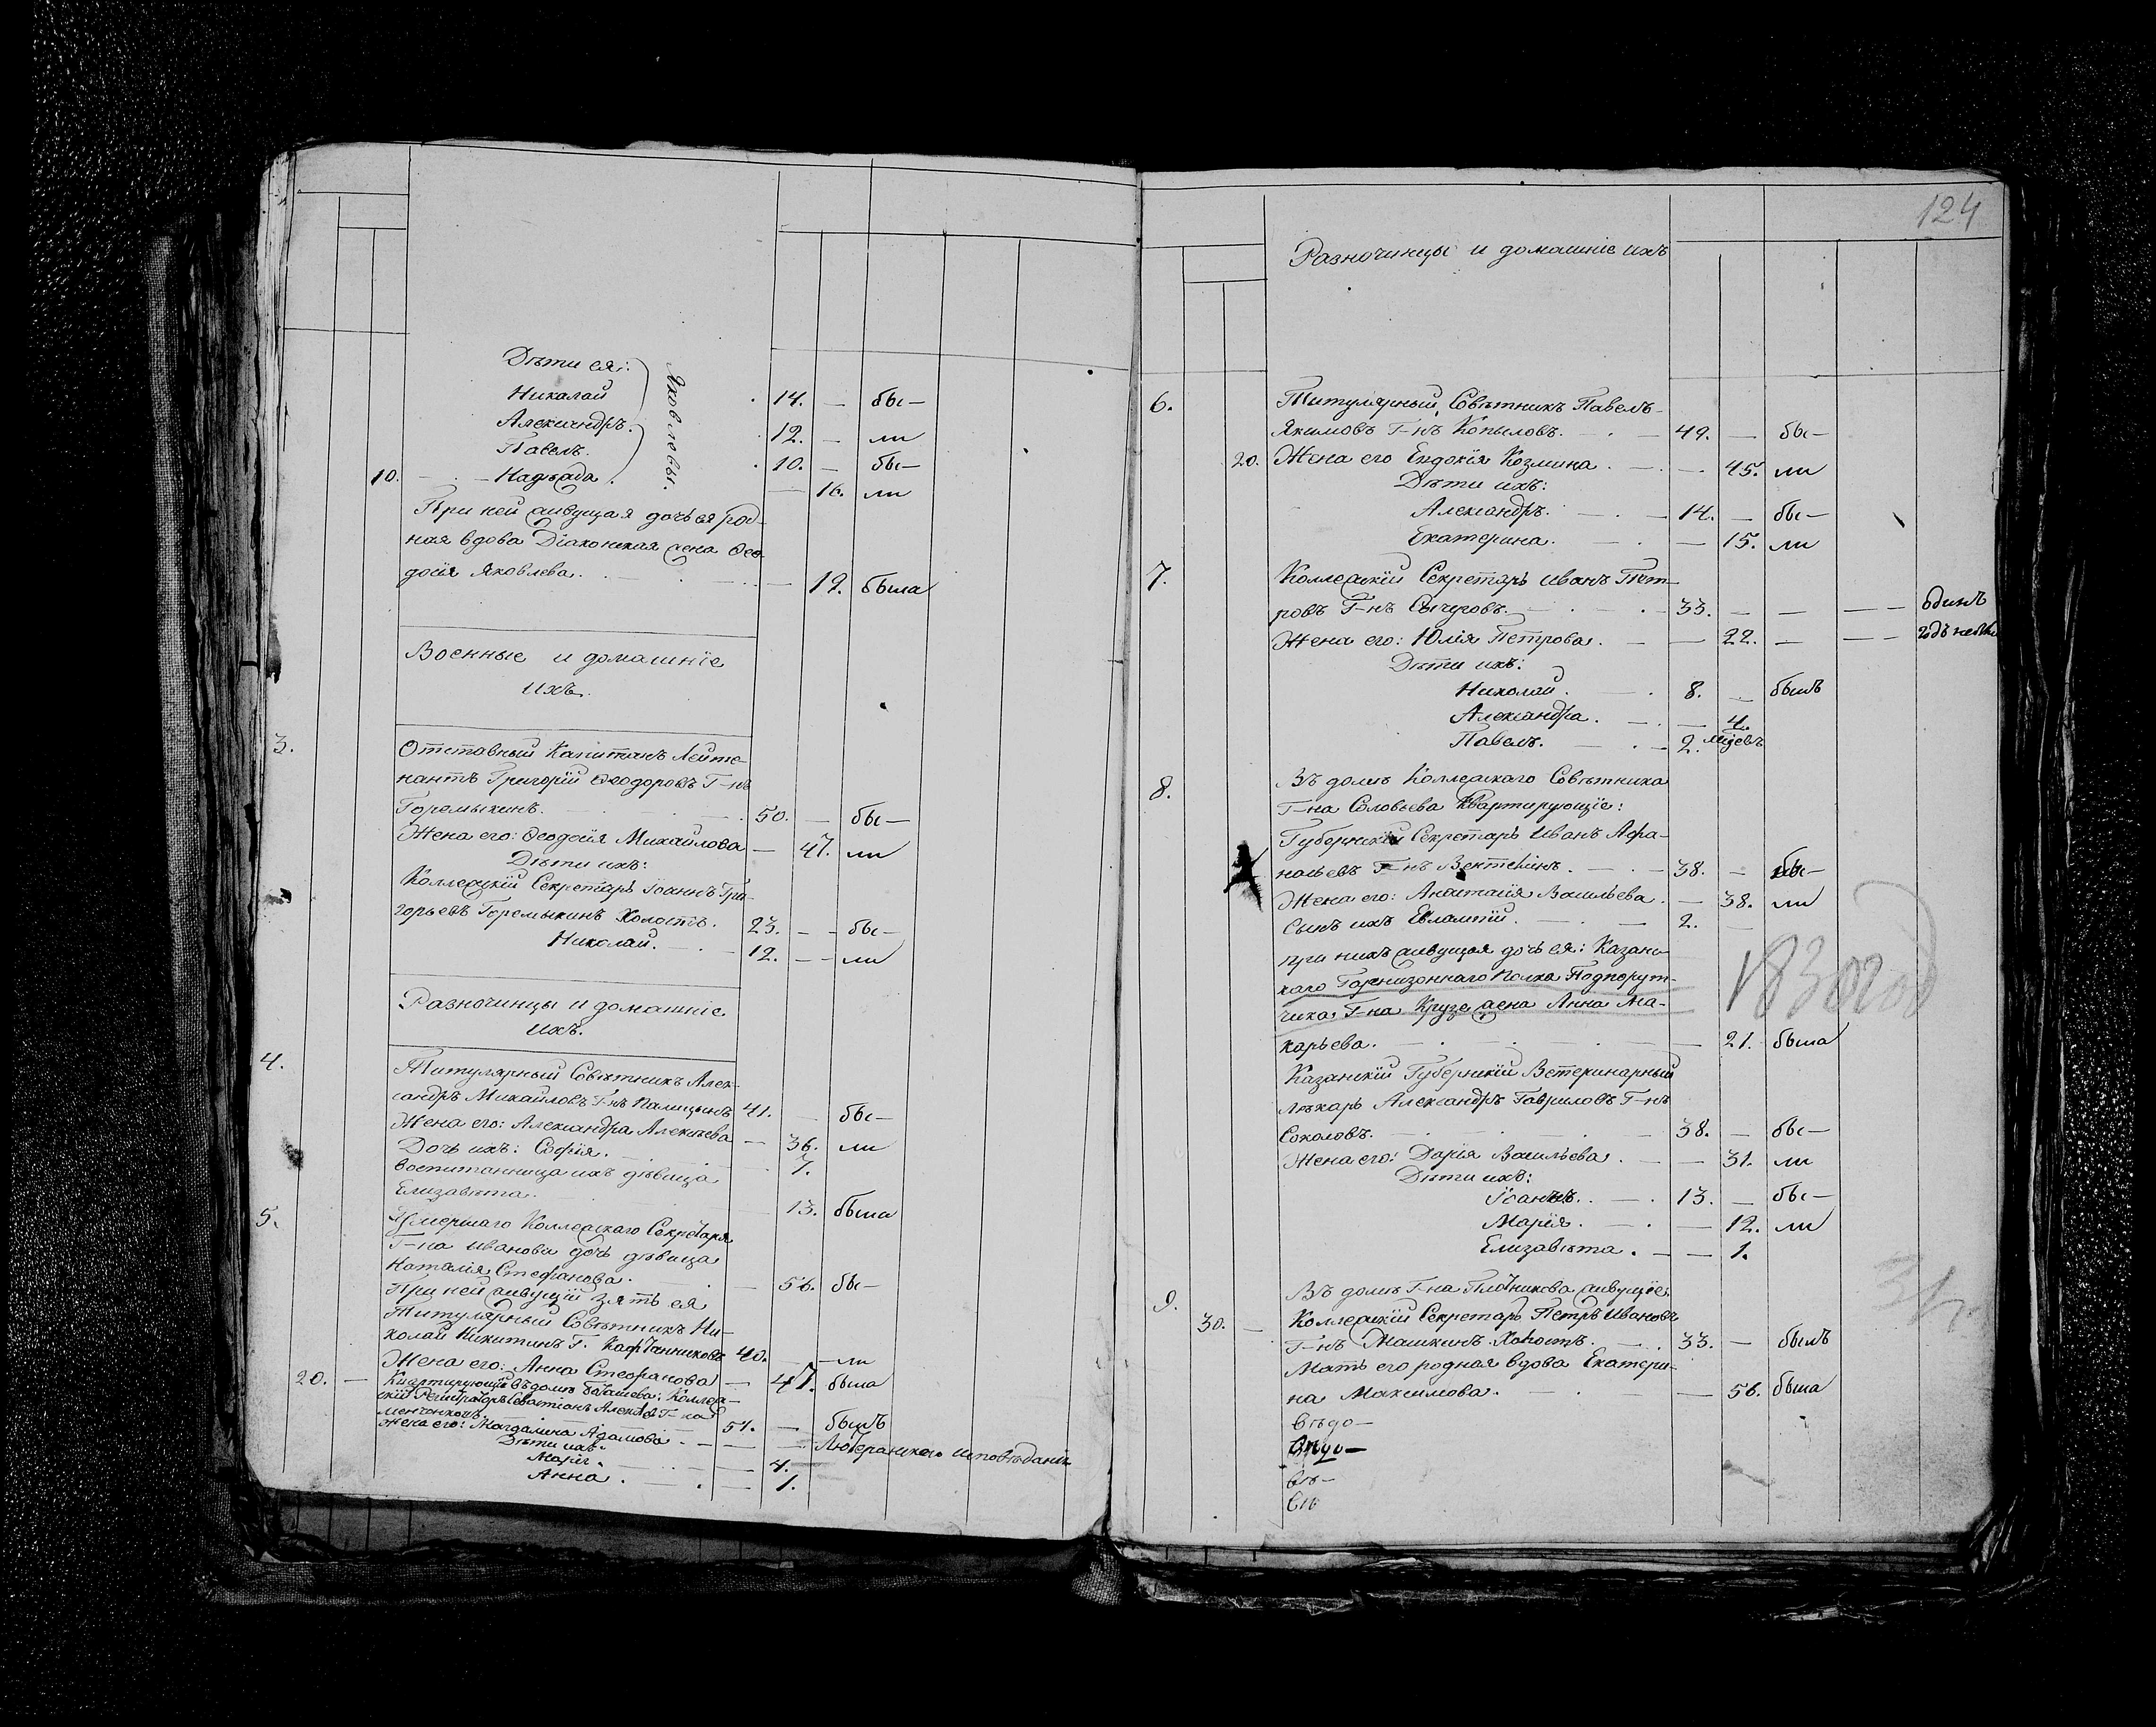 Дѣти ея:
Николай 14. — бы—
Александръ. 12. — ли
Павелъ. 10. — бы—
10. Надѣжда. — 16. ли
Яковлевы.
При ней живущая дочь ея род-
ная вдова Діаконская жена Ѳео-
досія Яковлева. — 19. была
Военные и домашніе
ихъ.
3. Отставный Капитанъ Лейте-
нантъ Григорій Ѳеодоровъ Г-нъ
Горемыкинъ. 50. — бы—
Жена его: Ѳеодосія Михайлова — 47. ли
Дѣти ихъ:
Коллежскій Секретарь Іоаннъ Гри-
горьевъ Горемыкинъ Холостъ. 23. — — бы—
Николай. 12. — — ли
Разночинцы и домашніе
ихъ.
4. Титулярный Совѣтникъ Алек-
сандръ Михайловъ Г-нъ Палицынъ 41. — бы—
Жена его: Александра Алексѣева — 36. ли
Дочь ихъ: Софія. 7.
воспитанница ихъ дѣвица
Елизавѣта. 13. была
5. Умершаго Коллежскаго Секретаря
Г-на Иванова дочь дѣвица
Наталія Стефанова. — 56. бы—
При ней живущій зять ея
Титулярный Совѣтникъ Ни-
колай Никитинъ Г. 40. — ли
Жена его: Анна Стефанова — 47. была
20. — Квартирующій въ домѣ Коллеж-
скій Регистраторъ Севастіанъ Г-нъ
51. — былъ
Жена его: Магдалина Адамова. — — Лютеранскаго исповѣданія
Дѣти ихъ.
Марія. — 4.
Анна. — 1.
124
Разночинцы и домашніе ихъ
6. Титулярный Совѣтникъ Павелъ
Якимовъ Г-нъ Копыловъ. — 49. — бы—
20. Жена его Евдокія Козмина. — 45. ли
Дѣти ихъ:
Александръ. — 14. — бы—
Екатерина. — 15. ли
7. Коллежскій Секретарь Иванъ Пет-
ровъ Г-нъ Сычуговъ. 33. — — — — Одинъ
Жена его: Юлія Петрова. — 22. — — — годъ
Дѣти ихъ:
Николай. 8. — былъ
Александра. — 4.
Павелъ. 2. мѣсяцевъ
8. Въ домѣ Коллежскаго Совѣтника
Г-на Соловьева Квартирующіе:
Губернскій Секретарь Иванъ Афа-
насьевъ Г-нъ 38. — бы—
Жена его: Анастасія Васильева. — 38. ли
Сынъ ихъ Евлампій. — 2. —
при нихъ живущая дочь ея: Казанс-
каго Гарнизоннаго Полка Подпорут-
чика Г-на Крузе жена Анна Ма-
карьева. — 21. была
1830 год
Казанскій Губернскій Ветеринарный
лѣкарь Александръ Гавриловъ Г-нъ
Соколовъ. — 38. — бы—
Жена его: Дарія Васильева. — 31. ли
Дѣти ихъ:
Іоаннъ. — 13. — бы—
Марія. — 12. ли
Елизавѣта. — 1.
9. Въ домѣ Г-на Плотникова живущіе.
30. — Коллежскій Секретарь Петръ Ивановъ
Г-нъ Машкинъ Холостъ. 33. — былъ
Мать его родная вдова Екатери-
на Максимова. — 56. была